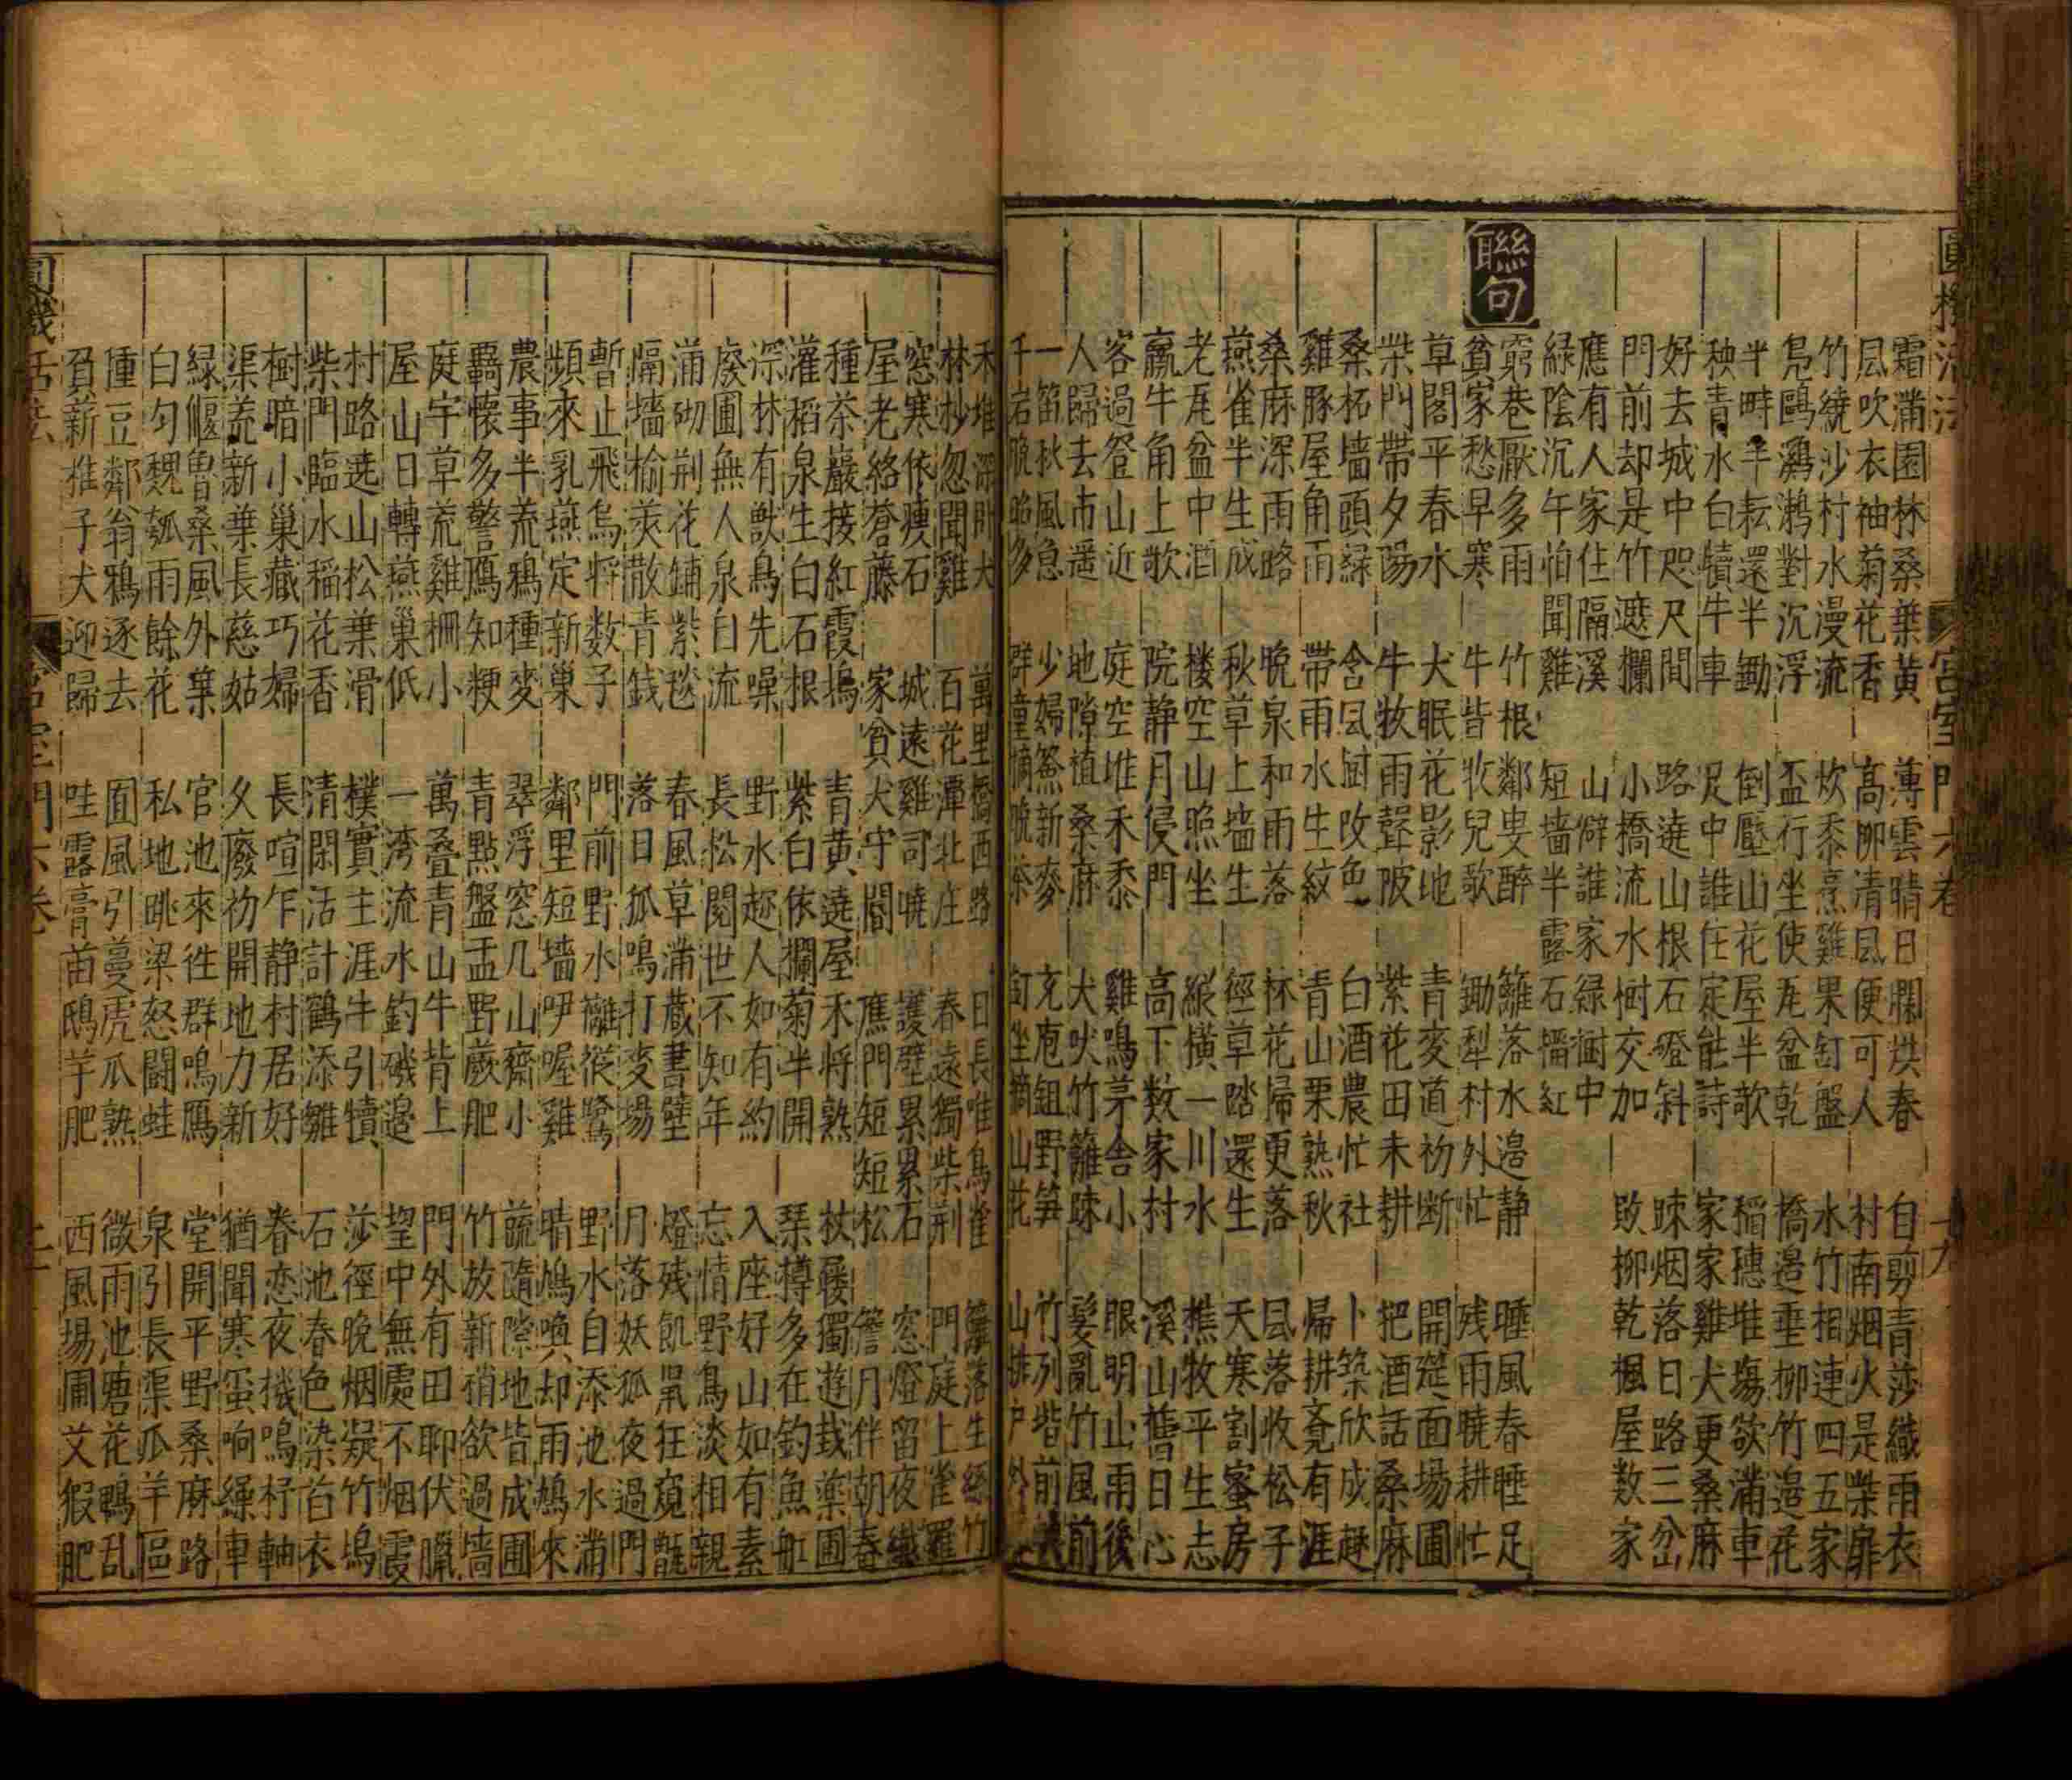 圓機活法 宮室門六卷 十九
霜滿園林桑葉黃 薄雲晴日爛烘春 自剪青莎織雨衣
風吹衣袖菊花香 高柳清風便可人 村南烟火是柴扉
竹繞沙村水漫流 炊黍烹雞果飣盤 水竹相連四五家
鳧鷗鸂鶒對沉浮 盃行坐使瓦盆乾 橋邉垂柳竹邉花
半畤羊耘還半鋤 倒壓山花屋半欹 稻穗堆塲欲滿車
秧青水白犢牛車 足中誰在定能詩 家家雞犬更桑麻
好去城中咫尺間 路遶山根石磴斜 踈烟落日路三岔
門前却是竹遮攔 小橋流水樹交加 敗柳乾楓屋数家
應有人家住隔溪 山僻誰家綠樹中
綠陰沉午怕聞雞 短墻半露石榴紅
聯句
窮巷厭多雨 竹根鄰叟醉 籬落水邉静 睡風春睡足
貧家愁早寒 牛背牧兒歌 鋤犁村外忙 残雨曉耕忙
草閣平春水 犬眠花影地 青麥道初断 開筵面場圃
柴門帶夕陽 牛牧雨聲陂 紫花田未耕 把酒話桑麻
桑柘墙頭綠 含風厨改色 白酒農忙社 卜築欣成趣
雞豚屋角雨 帶雨水生紋 青山栗熟秋 帰耕竟有涯
桑麻深雨路 晚泉和雨落 林花帰更落 風落收松子
燕雀半生成 秋草上墙生 徑草踏還生 天寒割蜜房
老瓦盆中酒 楼空山照坐 縱橫一川水 樵牧平生志
羸牛角上歌 院静月侵門 高下数家村 溪山舊日心
客過登山近 庭空堆禾黍 雞鳴茅舎小 眼明山雨後
人歸去市遥 地隙植桑麻 犬吠竹籬踈 髪亂竹風前
一笛秋風急 少婦簽新麥 充庖鉏野笋 竹列堦前
千岩晚照多 群童摘晚茶 飣坐摘山花 山排戶外
禾堆深閉犬 萬里橋西路 日長唯鳥雀 籬落生孫竹
林杪忽聞雞 百花潭北庄 春遠獨柴荆 門庭上雀羅
窓寒依瘦石 城遠雞司曉 護壁累累石 窓燈留夜織
屋老絡蒼藤 家貧犬守閽 應門短短松 簷月伴朝舂
種茶巖接紅霞塢 青黄遶屋禾將熟 杖屨獨遊栽藥圃
灌稻泉生白石根 紫白依欄菊半開 琴樽多在釣魚舡
深林有獸鳥先噪 野水趂人如有約 入座好山如有素
廢圃無人泉自流 長松閱世不知年 忘情野鳥淡相親
滿砌荆花鋪紫毯 春風草滿蔵書壁 燈残飢鼠狂窺甑
隔墻榆莢散青錢 落日狐鳴打麥場 月落妖狐夜過門
暫止飛烏將数子 門前野水離從鷺 野水自添池水滿
頻來乳燕定新巢 鄰里短墻咿喔雞 晴鳩喚却雨鳩來
農事半荒鴉種麥 翠浮窓几山齋小 蔬隨隙地皆成圃
羇懷多警鴈知粳 青點盤盂野蕨肥 竹放新稍欲過墻
庭宇草荒雞柵小 萬叠青山牛背上 門外有田聊伏臘
屋山日轉燕巢低 一湾流水釣磯邉 望中無處不烟霞
村路遶山松葉滑 樸實主涯牛引犢 莎徑晚烟凝竹塢
柴門臨水稲花香 清閑活計鶴添雛 石池春色染苔衣
樹暗小巢藏巧婦 長喧乍静村居好 眷恋夜機鳴杼軸
渠荒新葉長慈姑 久廢初開地力新 猶聞寒蛩响繅車
綠堰魯桑風外葉 官池來徃群鳴鴈 堂開平野桑麻路
白匀魏瓠雨餘花 私地跳梁怒闘蛙 泉引長渠瓜羊區
種豆鄰翁鴉逐去 園風引蔓虎瓜熟 微雨池塘花鴨乱
負薪推子犬迎歸 哇露膏苗鴟芋肥 西風場圃艾豭肥
圓機活法 宮室門六卷